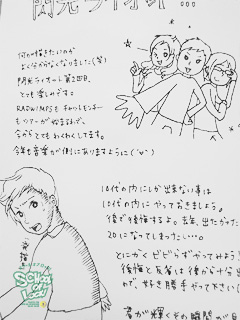 閃光ライオット!!!
何が描きたいのか
よく分からなくなりました(笑)
閃光ライオット第2回目、
とても楽しみです☆
RADWIMPSもチャットモンチー
も
今からとてもわくわくしてます。
今年も音楽が側にありますように('∀')
10代の内にしか出来ない事は
10代の内にやっておきましょう。
後で後悔するよ。去年、出たかった
20になってしまったい…。
とにかくビビらずやってみよう!
後悔と反省は後から十分出
ので、好き勝手やって下さい(
君が輝くその瞬間が